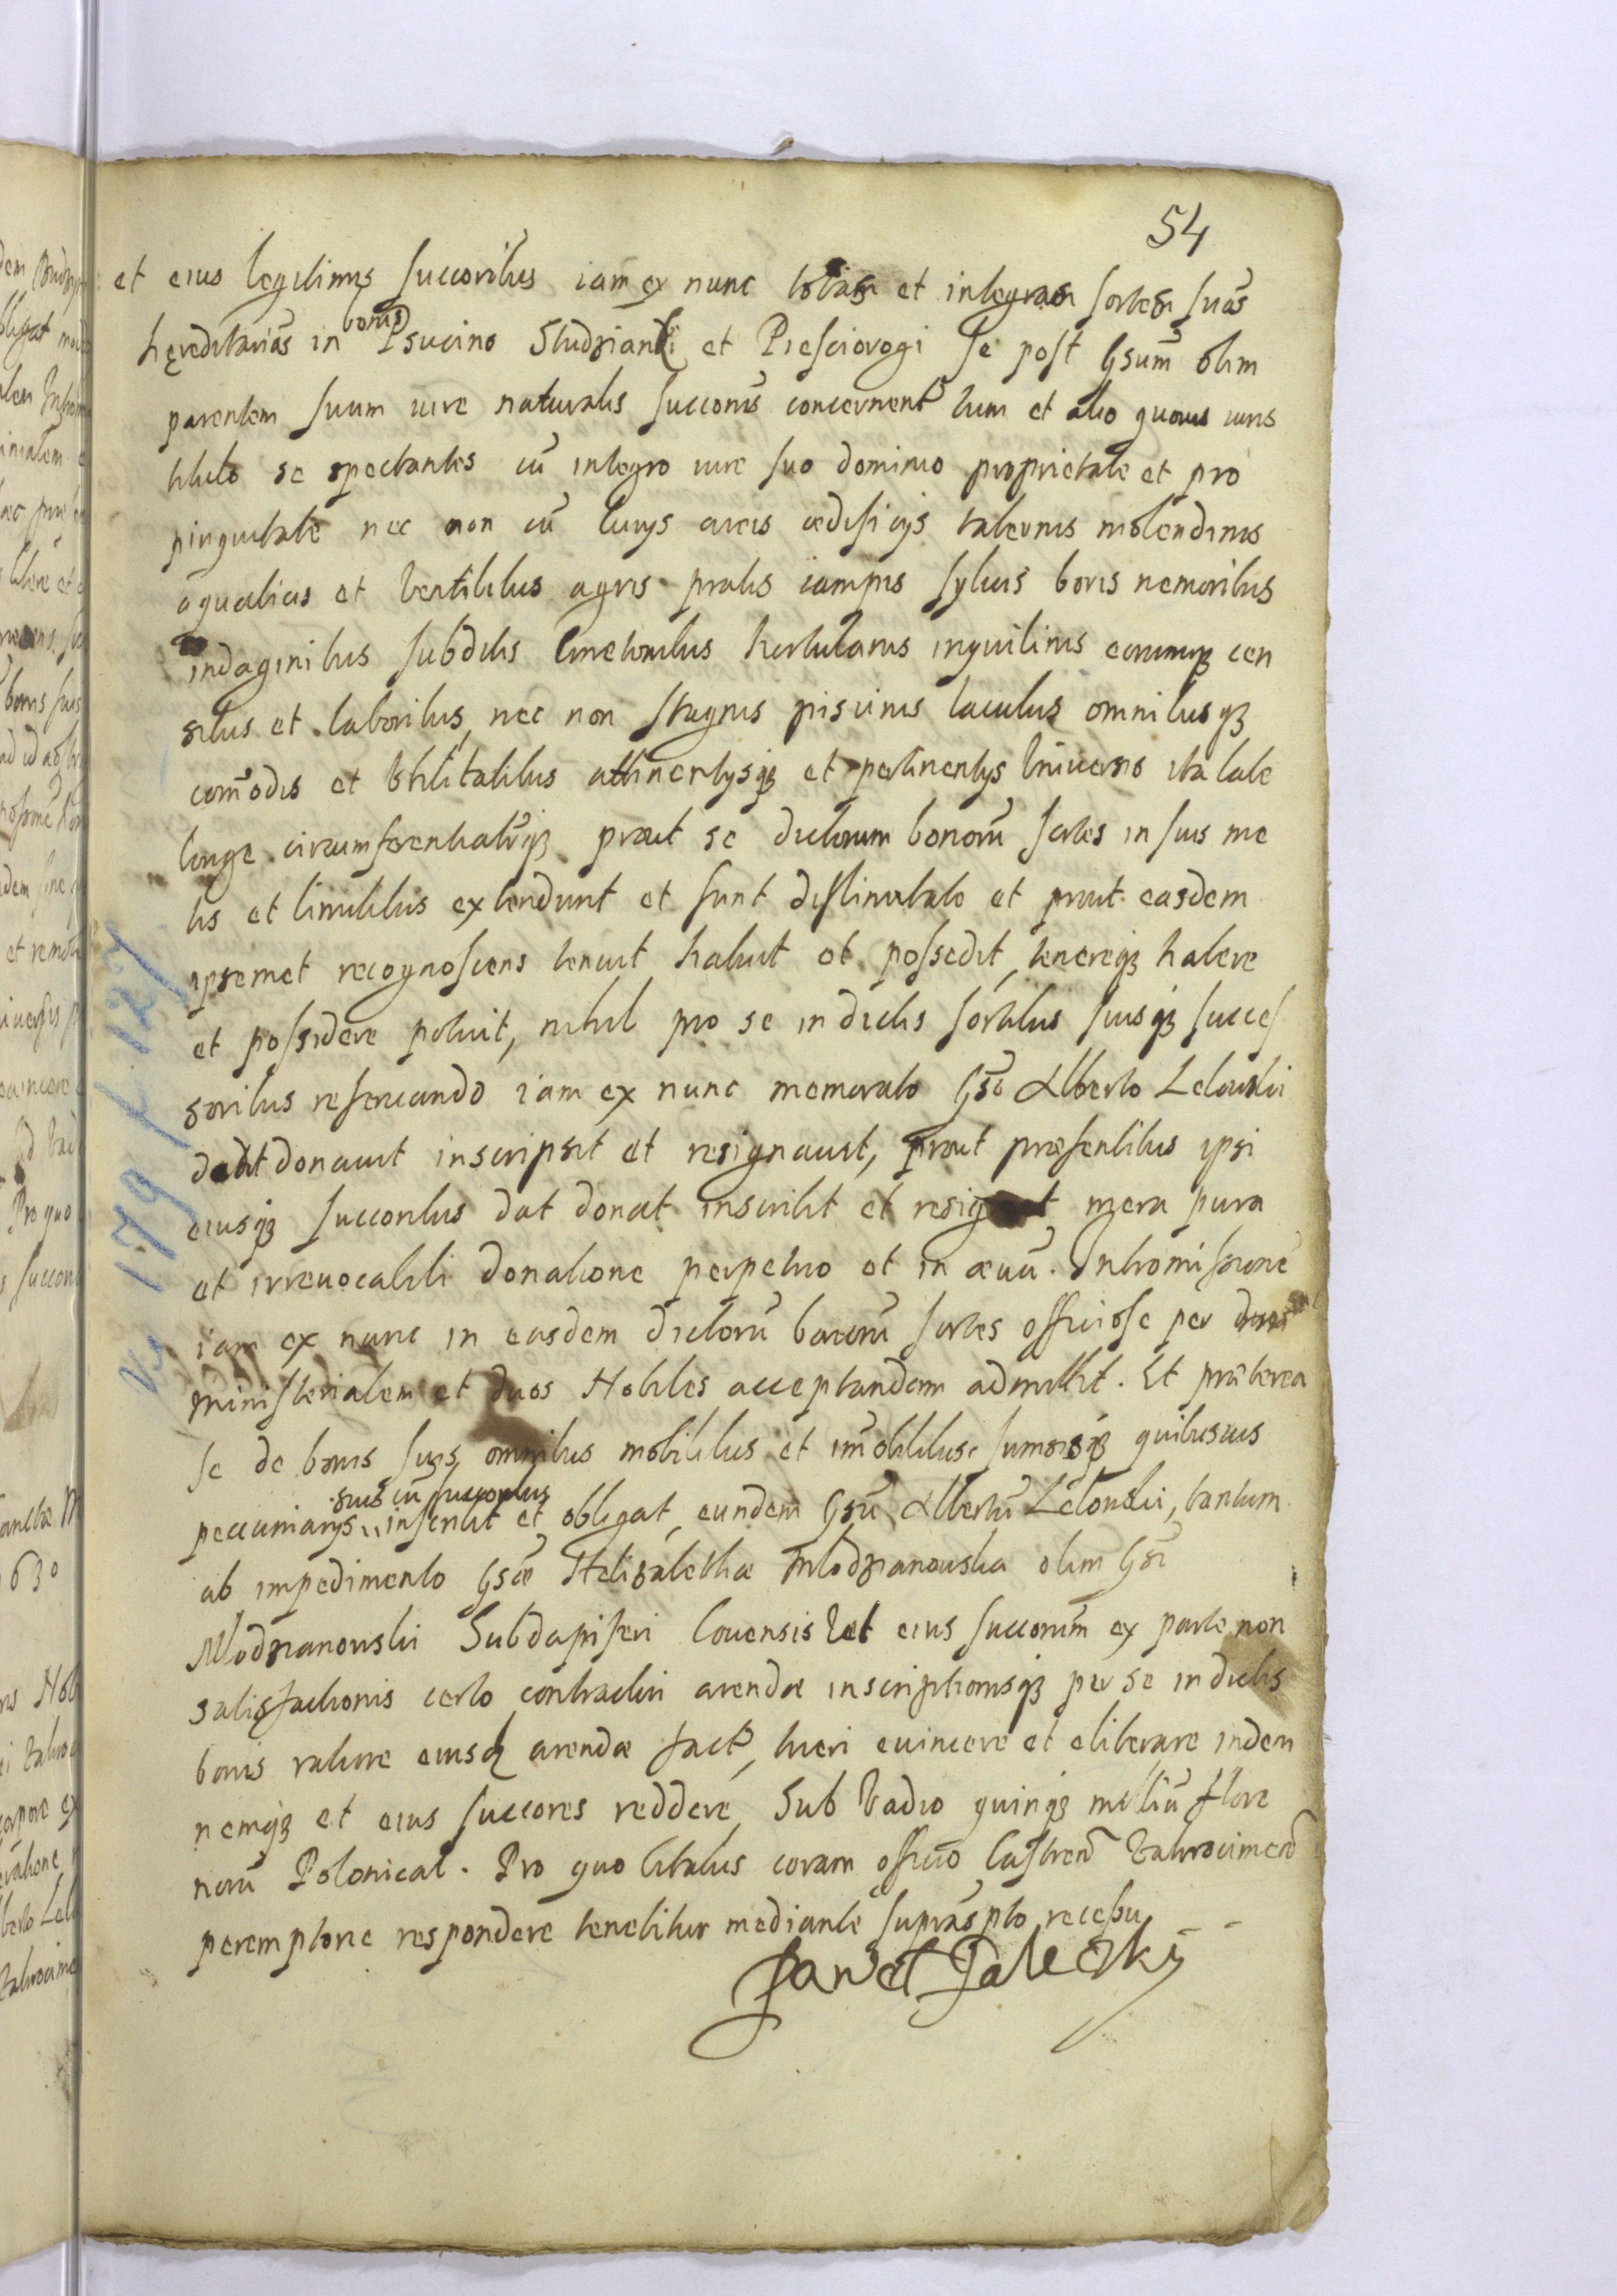 54
et eius legitimis succoribus iam ex nunc totas et integras sortes suas
hęreditarias in bonis Psucino Studzianki et Piesciorogi se post Gsum olim
parentem suum iure naturalis succonis concernent tum et alio quovis iuris
titulo se spectantes cū integro iure suo dominio proprietate et pro
pinquitate nec non cū curys areis ædificijs tabernis molendinis
aquaticis et ventilibus agris pratis campis syluis boris nemoribus
indaginibus subditis Cmetonibus hortulanis inquilinis eorumq3 cen
sibus et laboribus, nec non stagnis piscinis lacubus omnibusq3
com̄odis et Vtilitatibus attinentysq3 et pertinentys Vniuersis ita late
longe circumferentialr̄q3 prout se dictorum bonorū sortes in suis me
tis et limitibus extendunt et sunt distinctatæ et prout easdem
ipsemet recognoscens tenuit habuit et possedit, tenereq3 habere
et possidere potuit, nihil pro se in dictis sortibus suisq3 succes
soribus reseruando iam ex nunc memorato Gso Alberto Lelowski
dedit donauit inscripsit et resignauit, prout præsentibus ipsi
eiusq3 succoribus dat donat inscribit et resignat mera pura
et irreuocabili donatione perpetuo et in æuū. Intromissionē
iam ex nunc in easdem dictorū bonorū sortes officiose per
ministerialem et duos Nobiles acceptandam admittit. Et præterea
se de bonis suis omnibus mobilibus et im̄obilibus sumisq3 quibusuis
suis cū succoribus
pecuniarys inscribit et obligat, eundem Gsū Albertū Lelowski, tantum
ab impedimento Gsæ Helizabethæ Mlodzianowska olim Gsi
Mlodzianowski Subdapiferi Covensis et eius succorum ex parte non
satisfactionis certo contractui arendæ inscriptionisq3 per se in dictis
bonis ratione eiusd arendæ fact, tueri euincere et eliberare indem
nemq3 et eius succores reddere, Sub Vadio quinq3 milliū flore
norū Polonical. Pro quo citatus coram officio Castren̄ Zakrocimen̄
peremptorie respondere tenebitur mediante suprascpto recessu
Paweł Paleczky
Vs 179 / 127